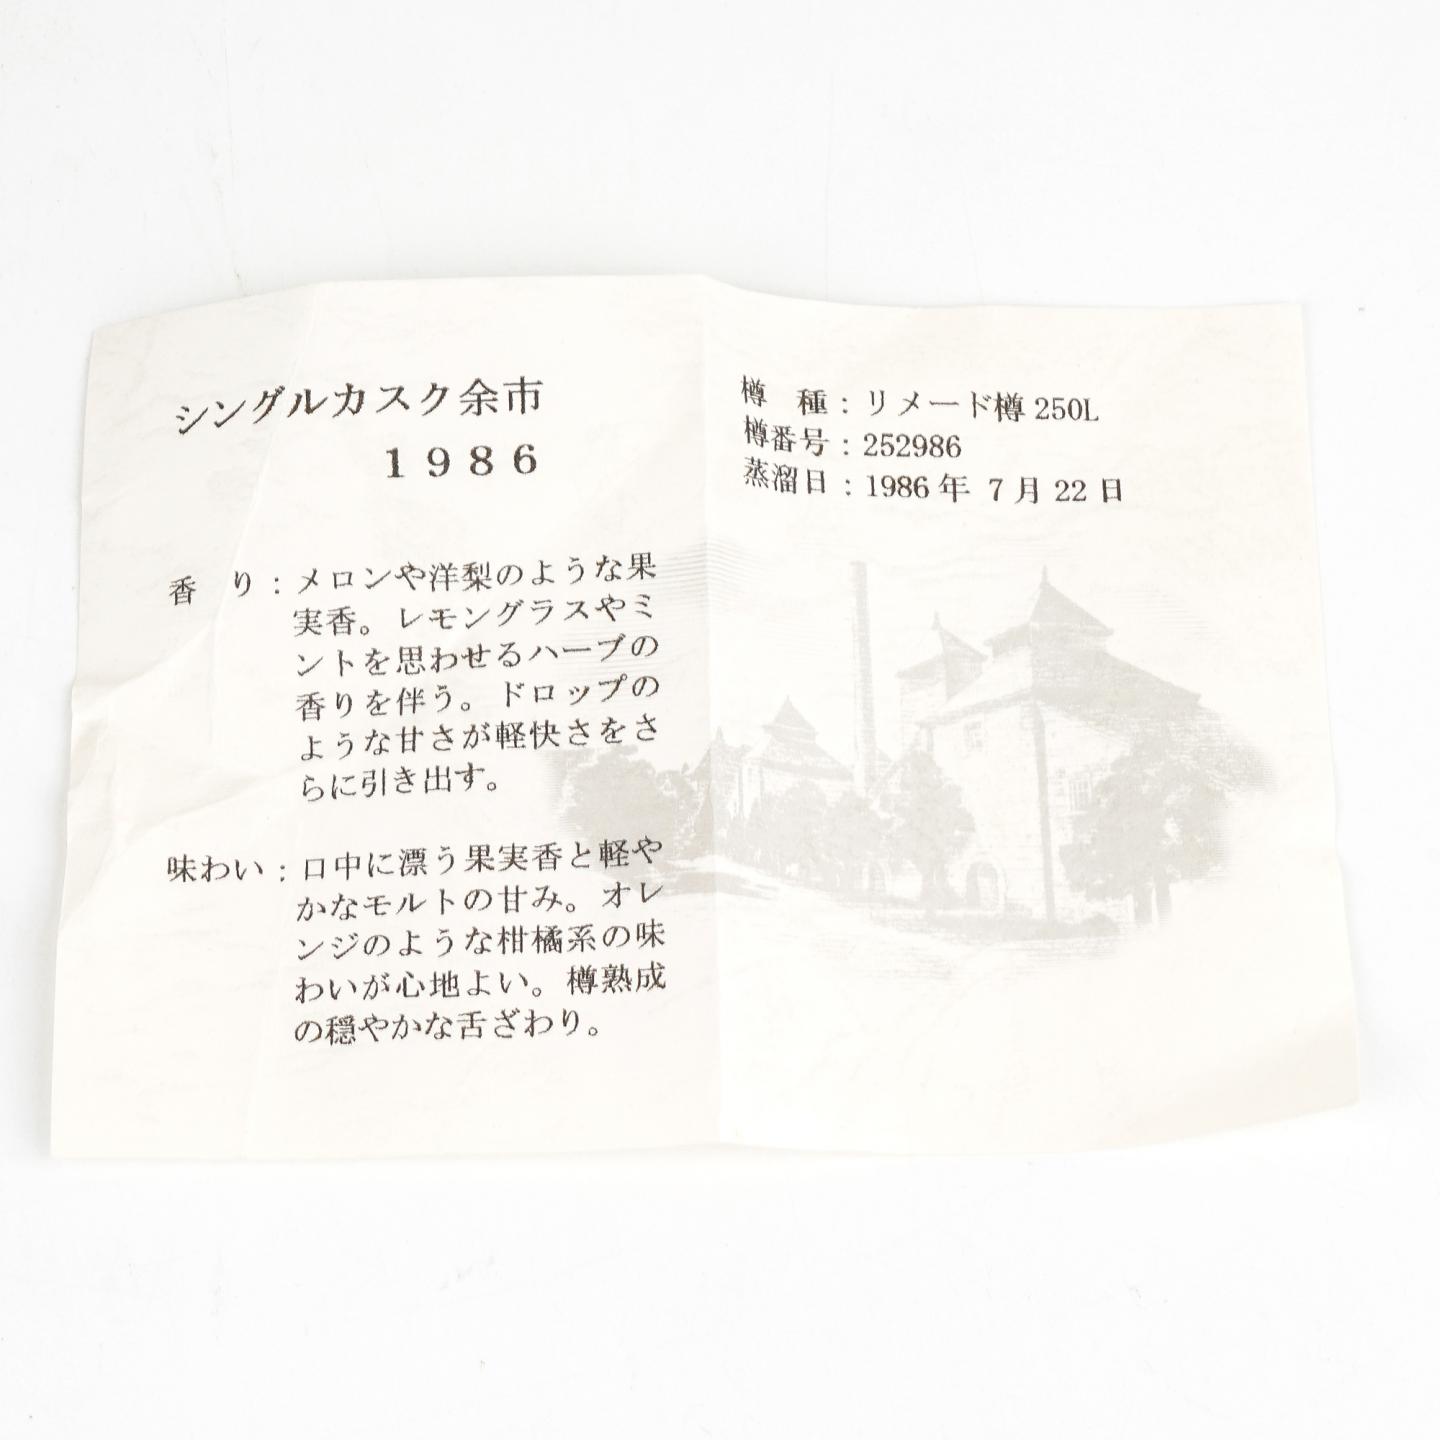 シングルカスク余市
1986
香り：メロンや洋梨のような果
実香。レモングラスやミ
ントを思わせるハーブの
香りを伴う。ドロップの
ような甘さが軽快さをさ
らに引き出す。
味わい：口中に漂う果実香と軽や
かなモルトの甘み。オレ
ンジのような柑橘系の味
わいが心地よい。樽熟成
の穏やかな舌ざわり。
樽種：リメード樽250L
樽番号：252986
蒸溜日：1986年 7月22日